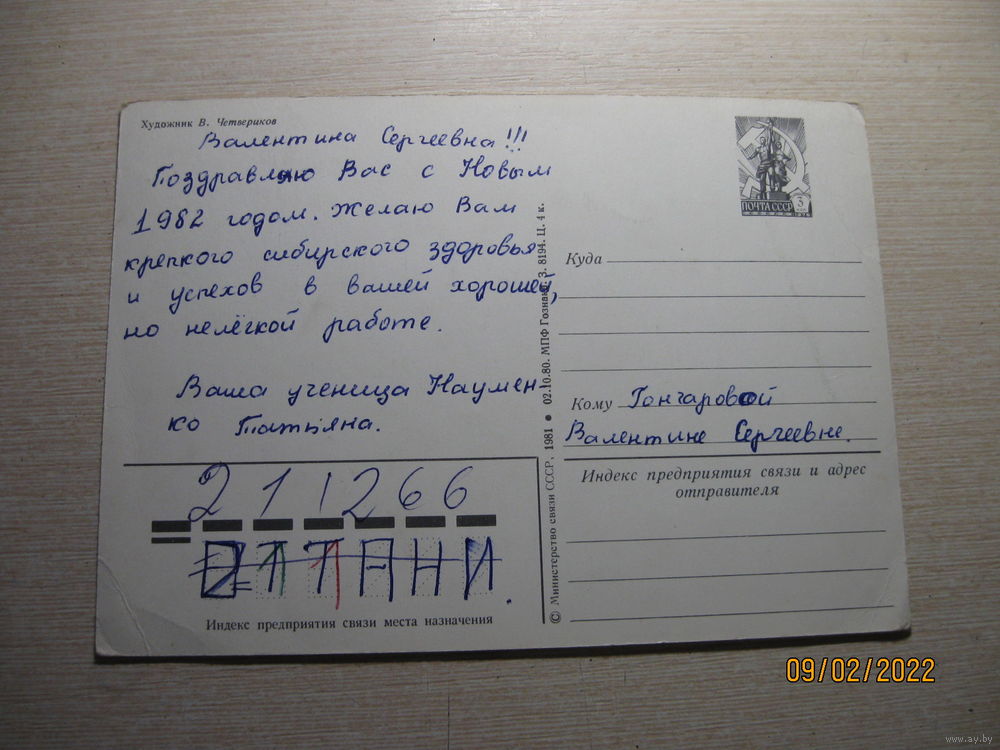 Художник В. Четвериков
Валентина Сергеевна!!!
Поздравляю Вас с Новым
1982 годом. Желаю Вам
крепкого сибирского здоровья
и успехов в вашей хорошей,
но нелёгкой работе.
Ваша ученица Наумен-
ко Татьяна.
211266
Индекс предприятия связи места назначения
© Министерство связи СССР, 1981 • 02.10.80. МПФ Гознака. З. 8194. Ц. 4 к.
ПОЧТА СССР 3
Куда
Кому Гончаровой
Валентине Сергеевне.
Индекс предприятия связи и адрес
отправителя
09/02/2022
www.ay.by